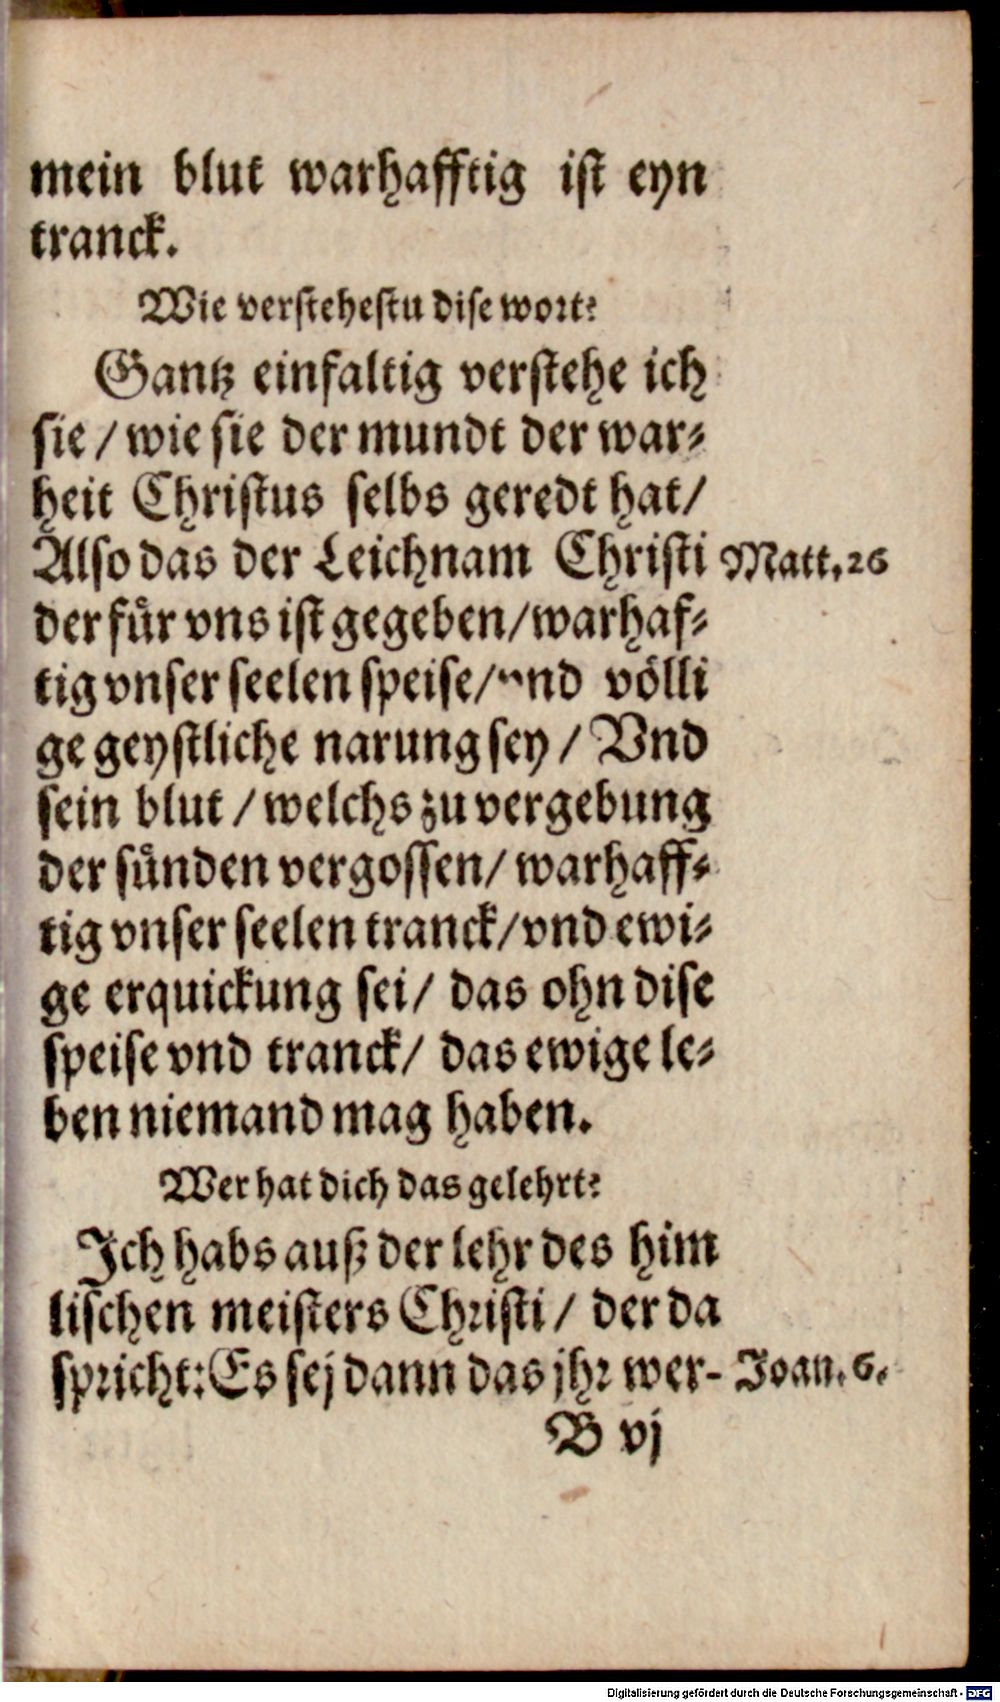 mein blut warhafftig ist eyn
tranck.
Wie verstehestu dise wort?
Gantz einfaltig verstehe ich
sie / wie sie der mundt der war⸗
heit Christus selbs geredt hat /
Also das der Leichnam Christi
Matt. 26
der für vns ist gegeben / warhaf⸗
tig vnser seelen speise / vnd völli
ge geystliche narung sey / Vnd
sein blut / welchs zu vergebung
der sünden vergossen / warhaff⸗
tig vnser seelen tranck / vnd ewi⸗
ge erquickung sei / das ohn dise
speise vnd tranck / das ewige le⸗
ben niemand mag haben.
Wer hat dich das gelehrt?
Ich habs auß der lehr des him
lischen meisters Christi / der da
spricht: Es sej dann das jhr wer-
Joan. 6.
B vj
Digitalisierung gefördert durch die Deutsche Forschungsgemeinschaft - DFG